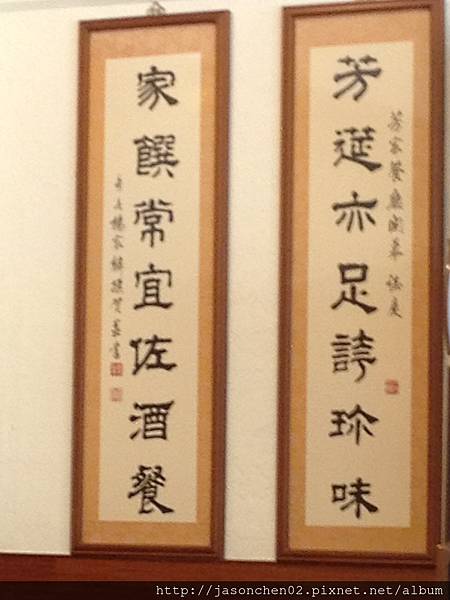 芳家餐廳開幕 誌慶
芳筵亦足誇珍味
家饌常宜佐酒餐
http://jasonchen02.pixnet.net/album